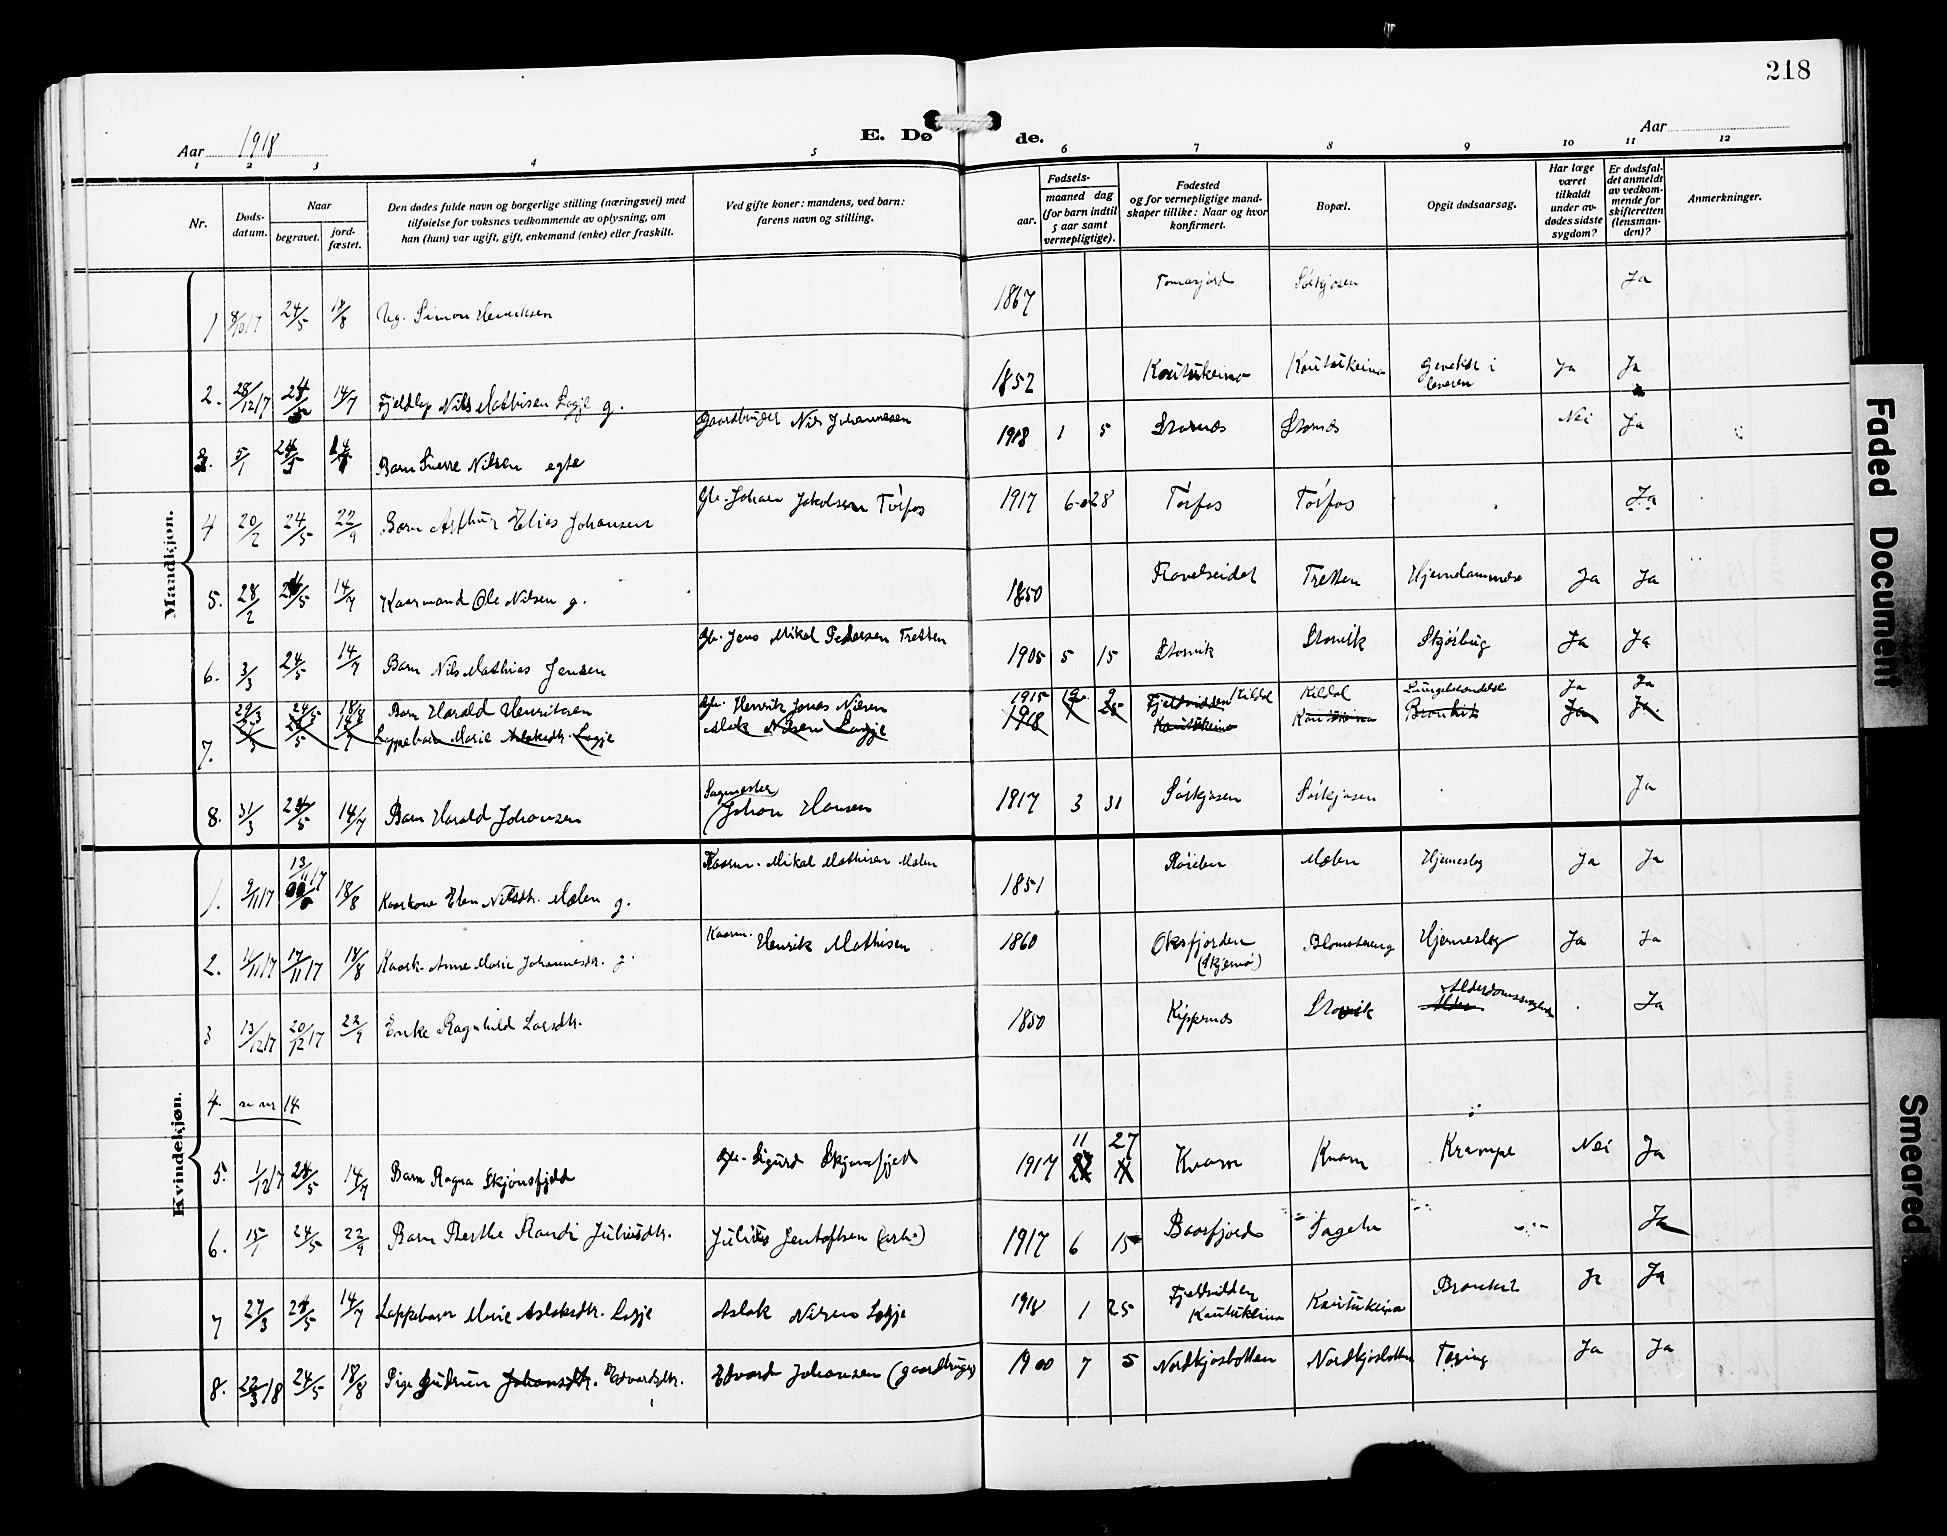 218
Aar 1918
E. Døde.
Aar
1 2 3 4 5 6 7 8 9 10 11 12
Nr.
Døds-datum.
Naar
begravet.
jord-fæstet.
Den dødes fulde navn og borgerlige stilling (næringsvei) med
tilføielse for voksnes vedkommende av oplysning, om
han (hun) var ugift, gift, enkemand (enke) eller fraskilt.
Ved gifte koner: mandens, ved barn:
farens navn og stilling.
Fødsels-
aar.
maaned dag
(for barn indtil
5 aar samt
vernepligtige).
Fødested
og for vernepligtige mand-
skaper tillike: Naar og hvor
konfirmert.
Bopæl.
Opgit dødsaarsag.
Har læge
været
tilkaldt
under av-
dødes sidste
sygdom?
Er dødsfal-
det anmeldt
av vedkom-
mende for
skifteretten
(lensman-
den)?
Anmerkninger.
Mandkjøn.
1 8/10 17 24/5 18/8 Ug. Simon Henriksen 1867 Tomasjord Sörkjosen Ja
2. 28/12 17 24/5 14/7 Fjeldlap Nils Mathisen Logje g. 1852 Koutukeino Koutukeino i leveren Ja Ja
3. 5/1 24/5 Barn Sverre Nilsen egte Gaardbruger Nils Johannesen 1918 1 5 Stornes Stornes Nei Ja
4 20/2 24/5 22/9 Barn Arthur Elias Johansen Gbr. Johan Jakobsen Törfos 1917 6 28 Törfos Törfos Ja
5. 28/2 24/5 14/7 Kaarmand Ole Nilsen g. 1850 Tretten Ja Ja
6. 3/3 24/5 14/7 Barn Nils Mathias Jensen Gbr. Jens Mikal Pedersen Tretten 1905 5 15 Storvik Storvik Skjörbug Ja Ja
29/3 24/5 18/8 Barn Harald Henriksen Gbr. Henrik Jonas Nilsen 1915 Kildal Kildal Ja Ja
7. 27/3 24/5 14/7 Lappebarn Marie Aslaksdtr. Logje Aslak Nilsen Logje 1918 1 25 Fjeldvidden Koutukeino Koutukeino Bronkit Ja Ja
8. 31/3 24/5 14/7 Barn Harald Johansen Sagmester Johan Hansen 1917 3 31 Sörkjosen Sörkjosen Ja
Kvindekjøn.
1. 9/11 17 13/11 17 18/8 Kaarkone Elen Nilsdtr. Mælen g. Kaarm. Mikal Mathisen Mælen 1851 Mælen Hjerneslag Ja Ja
2. 11/11 17 17/11 17 18/8 Kaark. Anne Marie Johannesdtr. g. Kaarm. Henrik Mathisen 1860 Oksfjorden (Skjervö) Blomstereng Hjerneslag Ja Ja
3 13/12 17 20/12 17 22/9 Enke Ragnhild Larsdtr. 1850 Kippernes Storvik Alderdomssvaghed Ja
4. se nr 14
5. 1/12 17 24/5 14/7 Barn Ragna Skjönsfjeld Gbr. Sigurd Skjönsfjeld 1917 11 27 Kvarn Kvarn Krampe Nei Ja
6. 15/1 24/5 22/9 Barn Berthe Randi Juliusdtr. Julius Jentoftsen (arb.) 1917 6 15 Baasfjord Ja
7 27/3 24/5 14/7 Lappebarn Marie Aslaksdtr. Logje Aslak Nilsen Logje 1918 1 25 Fjeldvidden Koutukeino Koutukeino Bronkit Ja Ja
8. 22/3 18 24/5 18/8 Pige Gudrun Johansdtr. Edvardsdtr. Edvard Johansen (gaardbruger) 1900 7 5 Nordkjosbotten Nordkjosbotten Tæring Ja Ja
Faded Document
Smeared